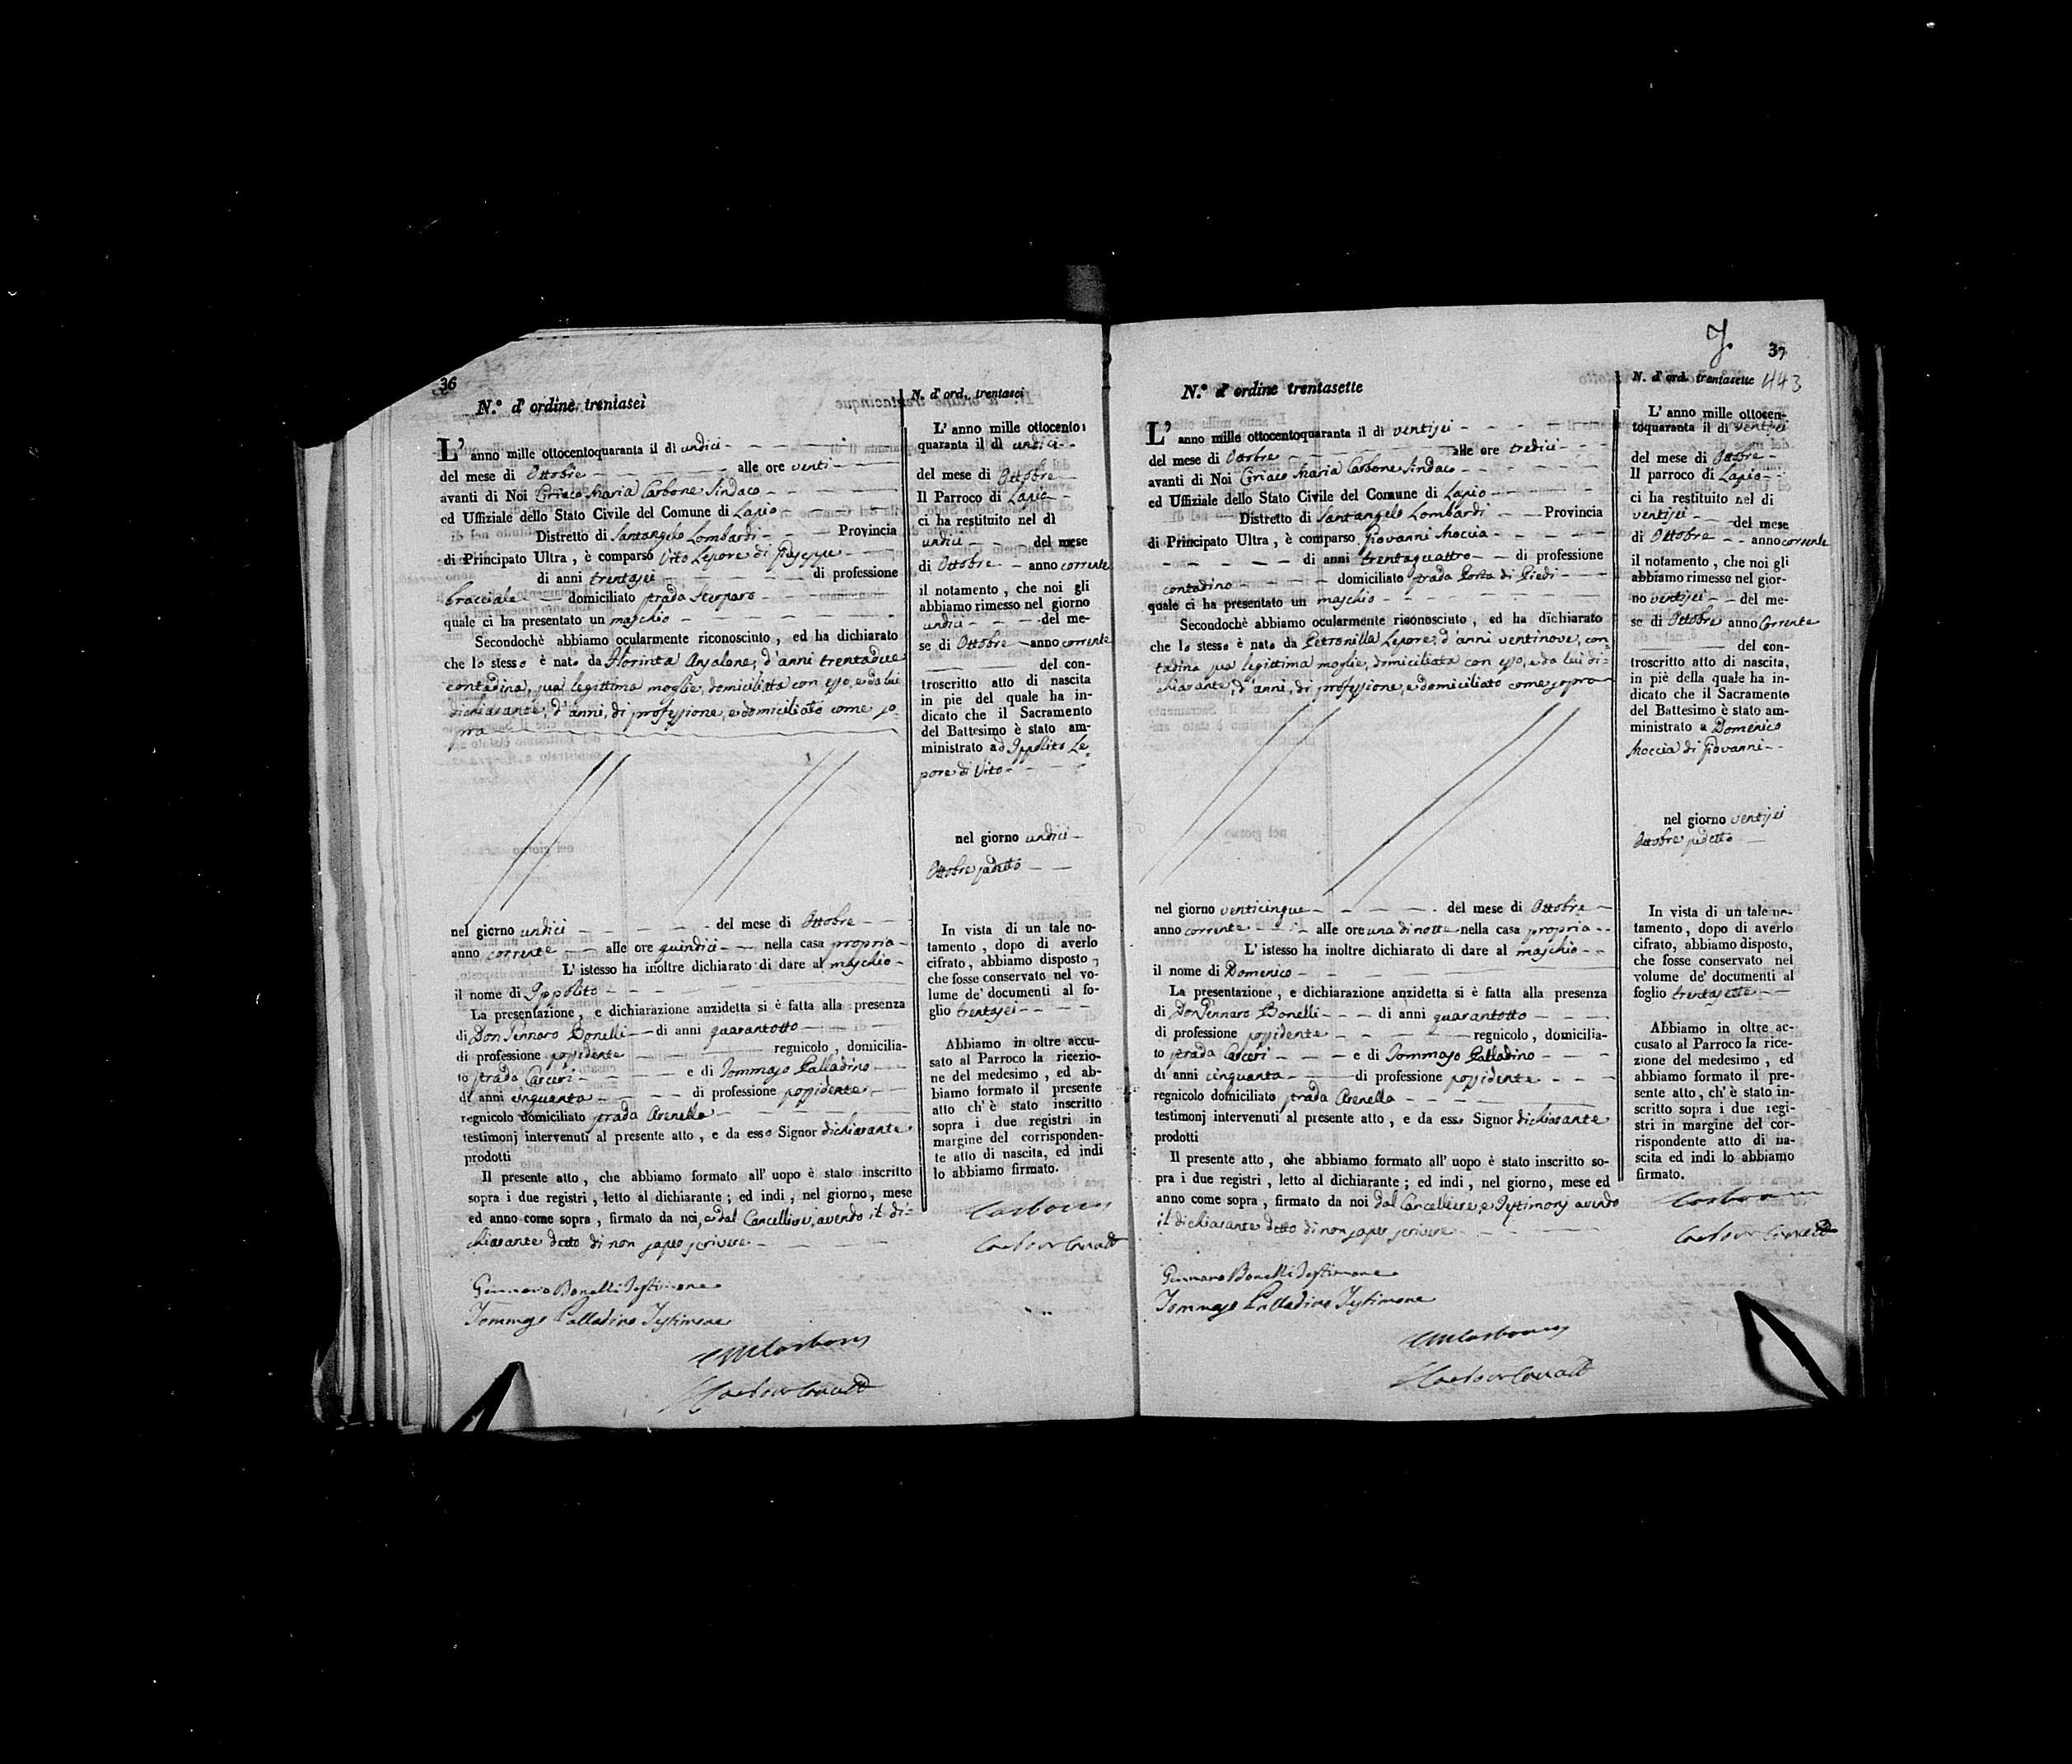 36
N.° d' ordine trentasei
L' anno mille ottocentoquaranta il dì undici
del mese di Ottobre alle ore venti
avanti di Noi Ciriaco Maria Carbone Sindaco
ed Uffiziale dello Stato Civile del Comune di Lapio
Distretto di Santangelo Lombardi Provincia
di Principato Ultra, è comparso Vito Lepore di Giuseppe
di anni trentasei di professione
bracciale domiciliato strada Sterparo
quale ci ha presentato un maschio
Secondochè abbiamo ocularmente riconosciuto, ed ha dichiarato
che lo stesso è nato da Florinta Ansalone, d'anni trentadue
contadina, sua legittima moglie, domicilitta con esso, e da lui
dichiarante, d'anni, di professione, e domiciliato come so-
pra
nel giorno undici del mese di Ottobre
anno corrente alle ore quindici nella casa propria
L' istesso ha inoltre dichiarato di dare al maschio
il nome di Ippolito
La presentazione, e dichiarazione anzidetta si è fatta alla presenza
di Don Gennaro Bonelli di anni quarantotto
di professione possidente regnicolo, domicilia-
to strada Carceri e di Tommaso Palladino
di anni cinquanta di professione possidente
regnicolo domiciliato strada Arenella
testimonj intervenuti al presente atto, e da esso Signor dichiarante
prodotti
Il presente atto, che abbiamo formato all' uopo è stato inscritto
sopra i due registri, letto al dichiarante; ed indi, nel giorno, mese
ed anno come sopra, firmato da noi, e dal Cancelliere, avendo il di-
chiarante detto di non saper scrivere
Gennaro Bonelli Testimone
Tommaso Palladino Testimone
CMCarbone
N. d' ord. trentasei
L' anno mille ottocento
quaranta il dì undici
del mese di Ottobre
Il Parroco di Lapio
ci ha restituito nel dì
undici del mese
di Ottobre anno corrente
il notamento, che noi gli
abbiamo rimesso nel giorno
undici del me-
se di Ottobre anno corrente
del con-
troscritto atto di nascita
in pie del quale ha in-
dicato che il Sacramento
del Battesimo è stato am-
ministrato ad Ippolito Le-
pore di Vito
nel giorno undici
Ottobre sudetto
In vista di un tale no-
tamento, dopo di averlo
cifrato, abbiamo disposto,
che fosse conservato nel vo-
lume de' documenti al fo-
glio trentasei
Abbiamo in oltre accu-
sato al Parroco la ricezio-
ne del medesimo, ed ab-
biamo formato il presente
atto ch' è stato inscritto
sopra i due registri in
margine del corrisponden-
te atto di nascita, ed indi
lo abbiamo firmato.
Carbone
37
443
N.° d' ordine trentasette
L' anno mille ottocentoquaranta il dì ventisei
del mese di Ottobre alle ore tredici
avanti di Noi Ciriaco Maria Carbone Sindaco
ed Uffiziale dello Stato Civile del Comune di Lapio
Distretto di Santangelo Lombardi Provincia
di Principato Ultra, è comparso Giovanni Moccia
di anni trentaquattro di professione
contadino domiciliato strada Porta di Piedi
quale ci ha presentato un maschio
Secondochè abbiamo ocularmente riconosciuto, ed ha dichiarato
che lo stesso è nato da Petronilla Lepore, d'anni ventinove, con-
tadina sua legittima moglie, domiciliata con esso, e da lui di-
chiarante, d'anni, di professione, e domiciliato come sopra
nel giorno venticinque del mese di Ottobre
anno corrente alle ore una di notte nella casa propria
L' istesso ha inoltre dichiarato di dare al maschio
il nome di Domenico
La presentazione, e dichiarazione anzidetta si è fatta alla presenza
di Don Gennaro Bonelli di anni quarantotto
di professione possidente regnicolo, domicilia-
to strada Carceri e di Tommaso Palladino
di anni cinquanta di professione possidente
regnicolo domiciliato strada Arenella
testimonj intervenuti al presente atto, e da esso Signor dichiarante
prodotti
Il presente atto, che abbiamo formato all' uopo è stato inscritto so-
pra i due registri, letto al dichiarante; ed indi, nel giorno, mese ed
anno come sopra, firmato da noi dal Cancelliere, e Testimonj avendo
il dichiarante detto di non saper scrivere
Gennaro Bonelli Testimone
Tommaso Palladino Testimone
CMCarbone
N. d' ord. trentasette
L' anno mille ottocen-
toquaranta il dì ventisei
del mese di Ottobre
Il parroco di Lapio
ci ha restituito nel dì
ventisei del mese
di Ottobre anno corrente
il notamento, che noi gli
abbiamo rimesso nel gior-
no ventisei del me-
se di Ottobre anno Corrente
del con-
troscritto atto di nascita,
in piè della quale ha in-
dicato che il Sacramento
del Battesimo è stato am-
ministrato a Domenico
Moccia di Giovanni
nel giorno ventisei
Ottobre sudetto
In vista di un tale no-
tamento, dopo di averlo
cifrato, abbiamo disposto,
che fosse conservato nel
volume de' documenti al
foglio trentasette
Abbiamo in oltre ac-
cusato al Parroco la rice-
zione del medesimo, ed
abbiamo formato il pre-
sente atto, ch' è stato in-
scritto sopra i due regi-
stri in margine del cor-
rispondente atto di na-
scita ed indi lo abbiamo
firmato.
Carbone